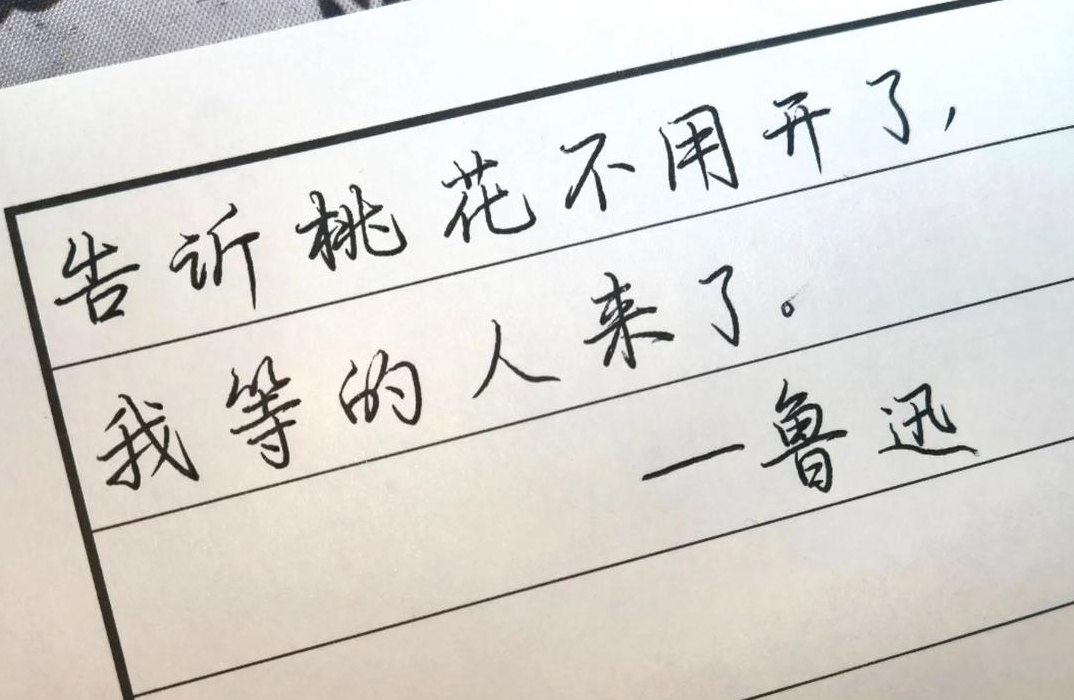 告诉桃花不用开了,
我等的人来了。
—鲁迅